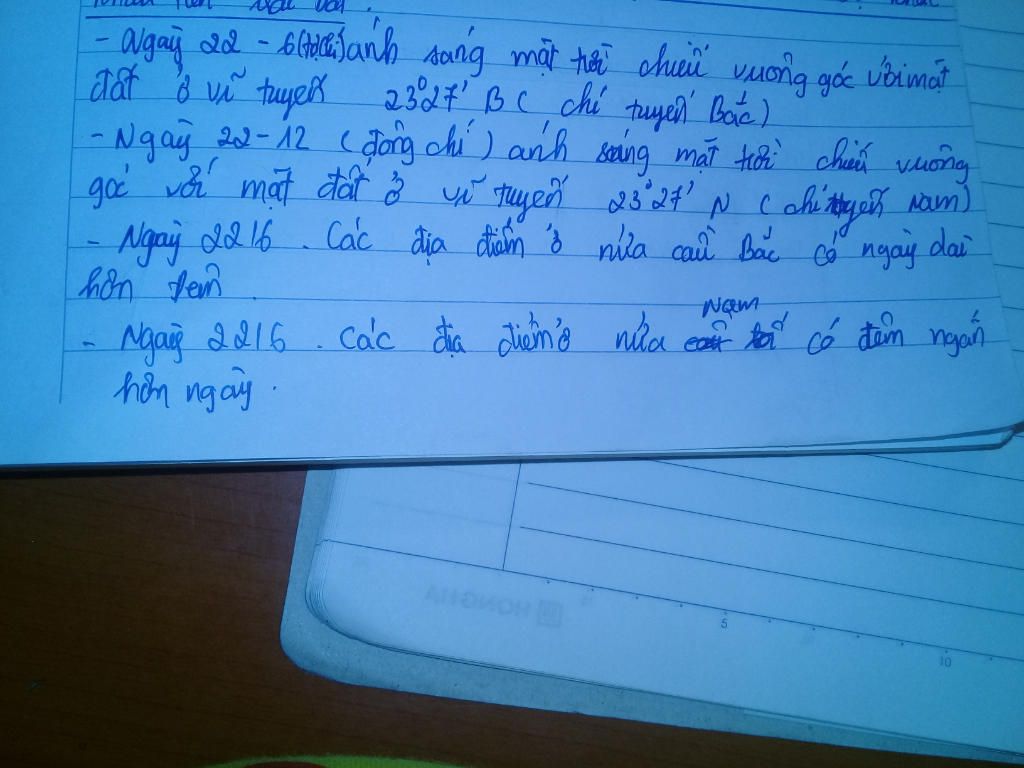 - Ngày 22 - 6 (hạ chí) ánh sáng mặt trời chiếu vuông góc với mặt
đất ở vĩ tuyến 23°27' B ( chí tuyến Bắc)
- Ngày 22-12 (đông chí) ánh sáng mặt trời chiếu vuông
góc với mặt đất ở vĩ tuyến 23°27' N (chí tuyến Nam)
- Ngày 22/6. Các địa điểm ở nửa cầu Bắc có ngày dài
hơn đêm.
Nam
- Ngày 22/6. Các địa điểm ở nửa cầu có đêm ngắn
hơn ngày.
HONGHA
5
10